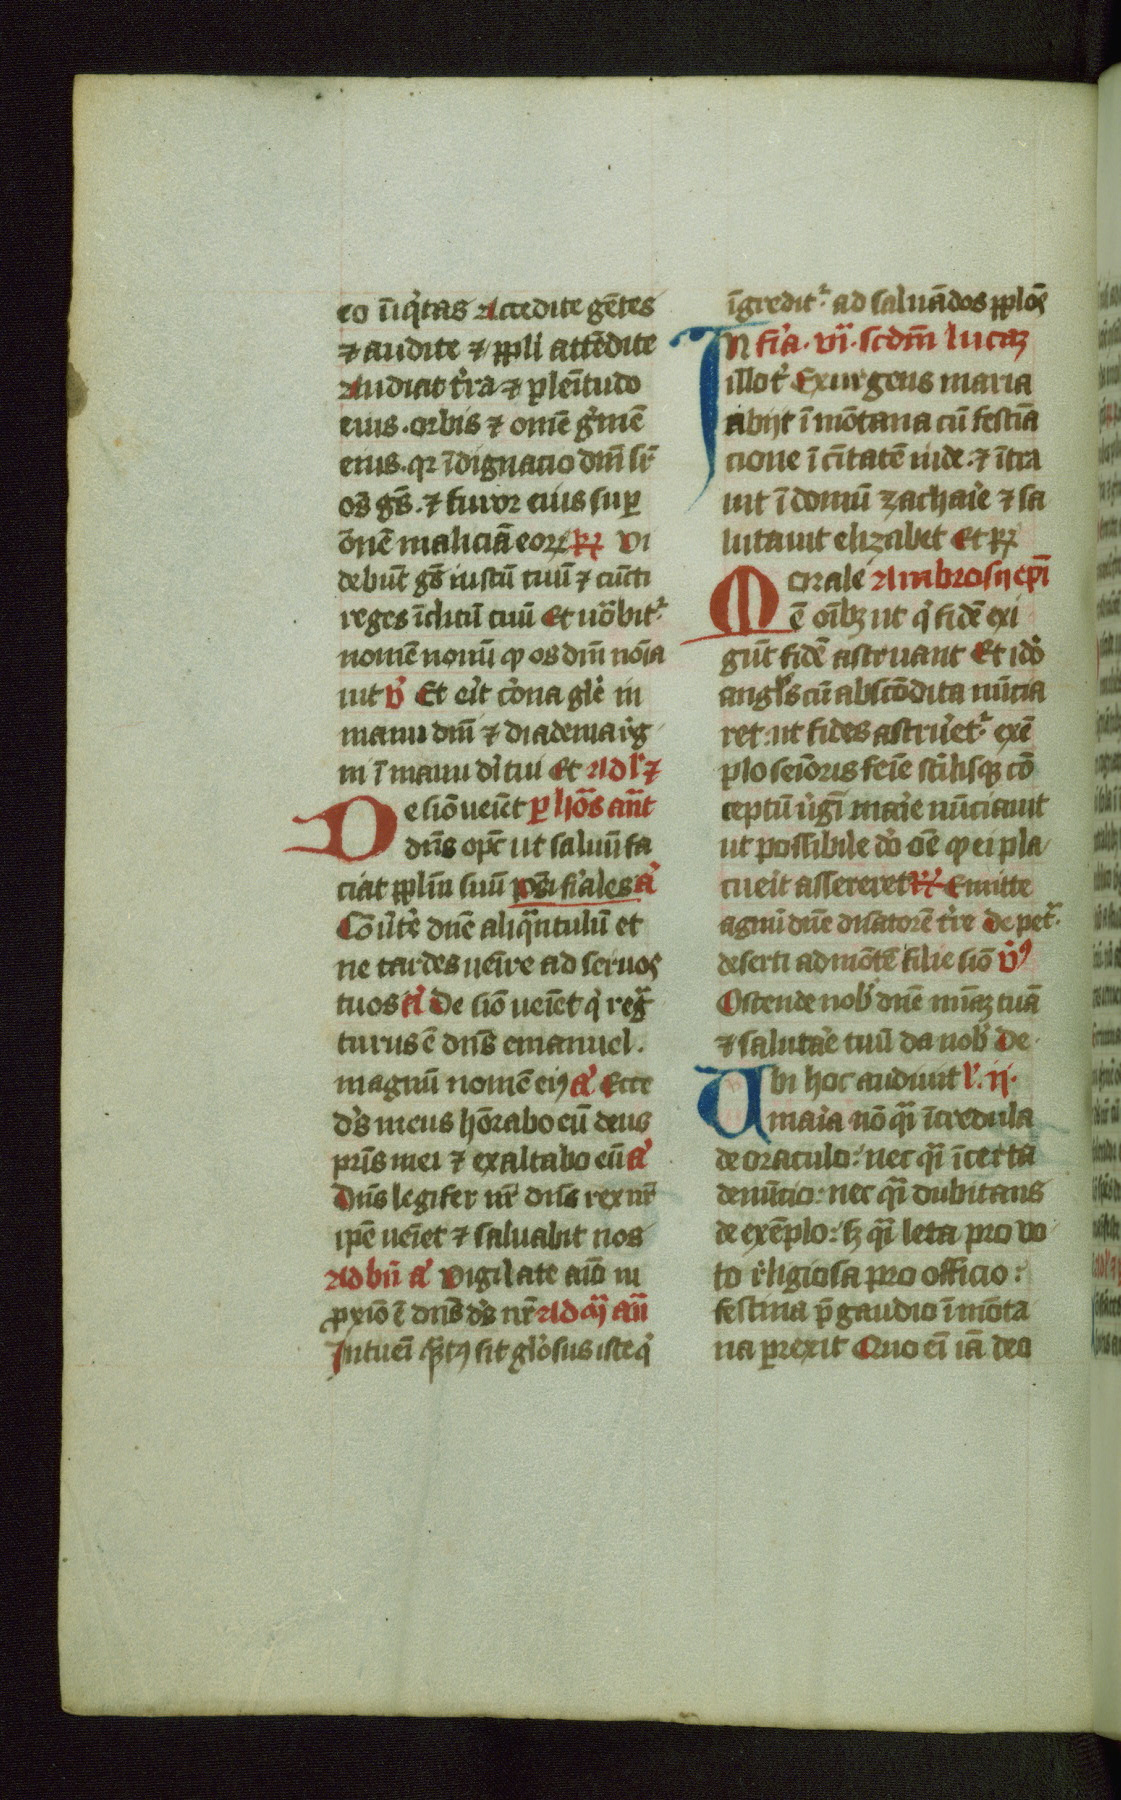 eo iniq̇tas Accedite gētes
⁊ audite ⁊ ppli attēdite
Audiat t̓ra ⁊ plenītudo
eius . orbis ⁊ omē g̓mē
eius . qr īdignacio dm̄i sr̄
os̄ gēs . ⁊ furor eius sup
ōnē maliciā eoꝝ ℞ Vi
debūt gēs iustū tuū ⁊ cūcti
reges īclitū tuū Et uōbit̉
nomē nouū qͦ os dm̄i nōīa
uit v̓ Et eīt cōna gle̓ in
manu dm̄i ⁊ diadema rīg
ni ī manu dī tui Et Ad l̄ ⁊
De siō veīet p hōs ant̄
dn̄s opc̄ ut saluū fa
ciat pplm̄ suū ps̄i fīales a̓
Cōūte̓ dnē aliqͣntulū et
ne tardes ueīre ad seruos
tuos a̓ De siō ueīet q̓ reḡ
turus ē dn̄s emanuel .
magnū nomē eiꝰ a̓ Ecce
ds̓ meus hōrabo eū deus
pr̄is mei ⁊ exaltabo eū a̓
Dn̄s legifer nr̄ dn̄s rex nr̄
ipē ueīet ⁊ saluabit nos
Ad bn̄ a̓ Vigilate aīo in
ꝓxīo ē dn̄s ds̓ nr̄ Ad mͣ an̄
Intuenī qͣtꝰ sit glōsus iste q̓
īgredit̉ ad saluādos pplos
In fīa . vi . scdm̄ lucaꝫ
illo t̓ Exurgens maria
abijt ī mōtana cū festiā
cione ī cītatē iude . ⁊ ītra
uit ī domū zacharie ⁊ sa
lutauit elizabet Et ℟
Morale Ambrosij epī
ē oībꝫ ut q̓ fidē exi
gūt fidē astruant Et idō
angls̓ cū abscōdita nūcia
ret . ut fides astruēt̉ exē
plo seīoris feīe sīlisqꝫ cō
ceptū vīgī maīe nūciauit
ut possibile dō oē qͦ ei pla
cueīt assereret ℟ Emitte
agnū dnē dn̄atorē tr̄e De pet̉
deserti ad mōtē filie siō v̓ꝰ
Ostende nob̄ dnē mīaꝫ tuā
⁊ salutāe tuū da nob̄ De
Ubi hoc audiuit l̄ . ij .
maīa nō qͣi īcredula
de oraculo : nec qͣi īcerta
de nūtio : nec qͣi dubitans
de exēplo : sꝫ qͣi leta pro vo
to r̓ligiosa pro officio :
festina p̄ gaudio ī mōta
na prexit Quo eī iā deo